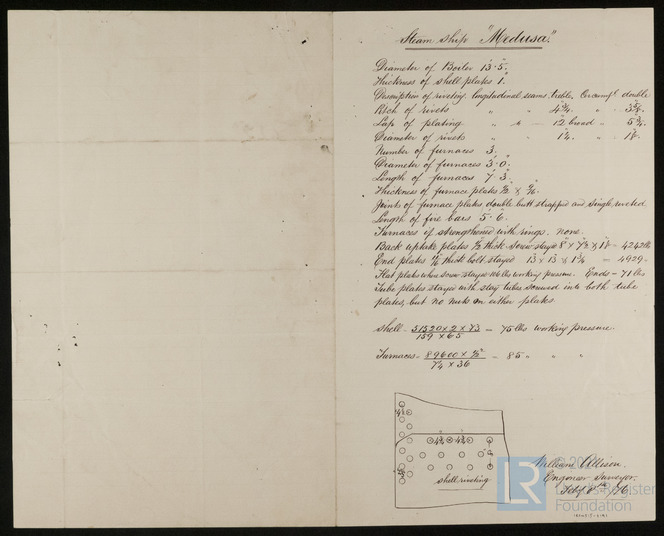 Steam Ship "Medusa."
Diameter of Boiler 13'.5".
Thickness of shell plates 1".
Description of riveting longitudinal seams treble, Circumfl double
Pitch of rivets " " 4¾" " 3¾".
Lap of plating " " 12 broad " 5¾".
Diameter of rivets " 1¼"
Number of furnaces 3.
Diameter of furnaces 3'.0".
Length of furnaces 7'.3".
Thickness of furnace plates ½" &
Joints of furnace plates double butt strapped and single riveted.
Length of fire bars 5'.6".
Furnaces if strengthened with rings. none.
Back uptake plates thick screw stays
End plates thick bolt stayed 13" x 13" x = 4929.
Flat plates where screw stayed 106 lbs working pressure. Ends = 71 lbs
Tube plates stayed with stay tubes screwed into both tube
plates, but no nuts on either plates.
Shell = 51520 x 2 x 73 = 75 lbs working pressure.
159 x 65
Furnaces = 89600 x ½² = 85 " " "
7¼ x 36
Shell riveting
William Allison.
Engineer Surveyor.
Feby 8th /76
LR
Lloyd's Register
Foundation